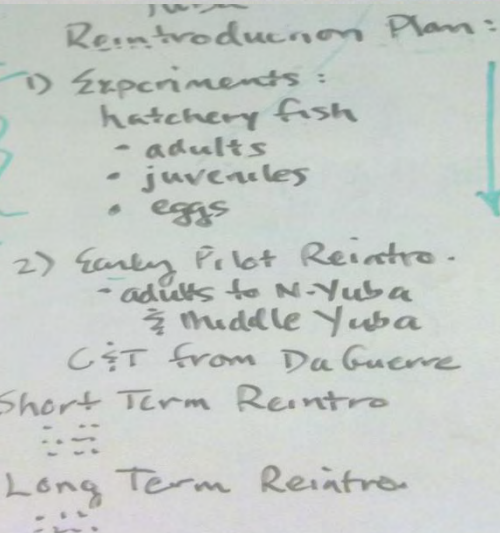 Reintroduction Plan:
1) Experiments:
hatchery fish
- adults
• juveniles
• eggs
2) Early Pilot Reintro.
- adults to N. Yuba
& Middle Yuba
C&T from DaGuerre
Short Term Reintro
Long Term Reintro.